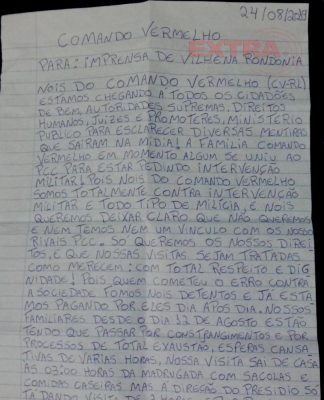 24/08/2019
COMANDO VERMELHO
EXTRA
PARA: IMPRENSA DE VILHENA RONDONIA
NOIS DO COMANDO VERMELHO (CV-RL)
ESTAMOS CHEGANDO A TODOS OS CIDADÕES
DE BEM, AUTORIDADES SUPREMAS, DIREITOS
HUMANOS, JUIZES E PROMOTERES, MINISTERIO
PUBLICO PARA ESCLARECER DIVERSAS MENTIRAS
QUE SAIRAM NA MIDIA! A FAMILIA COMANDO
VERMELHO EM MOMENTO ALGUM SE UNIU AO
PCC PARA ESTAR PEDINDO INTERVENÇÃO
MILITAR! POIS NOIS DO COMANDO VERMELHO
SOMOS TOTALMENTE CONTRA INTERVENSÃO
MILITAR E TODO TIPO DE MILICIA, E NOIS
QUEREMOS DEIXAR CLARO QUE NÃO QUEREMOS
E NEM TEMOS NEM UM VINCULO COM OS NOSSOS
RIVAIS PCC. SO QUEREMOS OS NOSSOS DIREI-
TOS, E QUE NOSSAS VISITAS SEJAM TRATADAS
COMO MERECEM: COM TOTAL RESPEITO E DIG
NIDADE! POIS QUEM COMETEU O ERRO CONTRA
A SOCIEDADE FOMOS NOIS DETENTOS E JÁ ESTA
MOS PAGANDO POR ELES DIA APÓS DIA. NOSSOS
FAMILIARES DESDE O DIA 12 DE AGOSTO ESTÃO
TENDO QUE PASSAR POR CONSTRANGIMENTOS E POR
PROCESSOS DE TOTAL EXAUSTÃO, ESPERAS CANSA
TIVAS DE VARIAS HORAS, NOSSA VISITA SAI DE CASA
ÀS 03:00 HORAS DA MADRUGADA COM SACOLAS E
COMIDAS CASEIRAS MAS A DIREÇÃO DO PRESIDIO SÓ
TA DANDO VISITA DE 2 HORAS